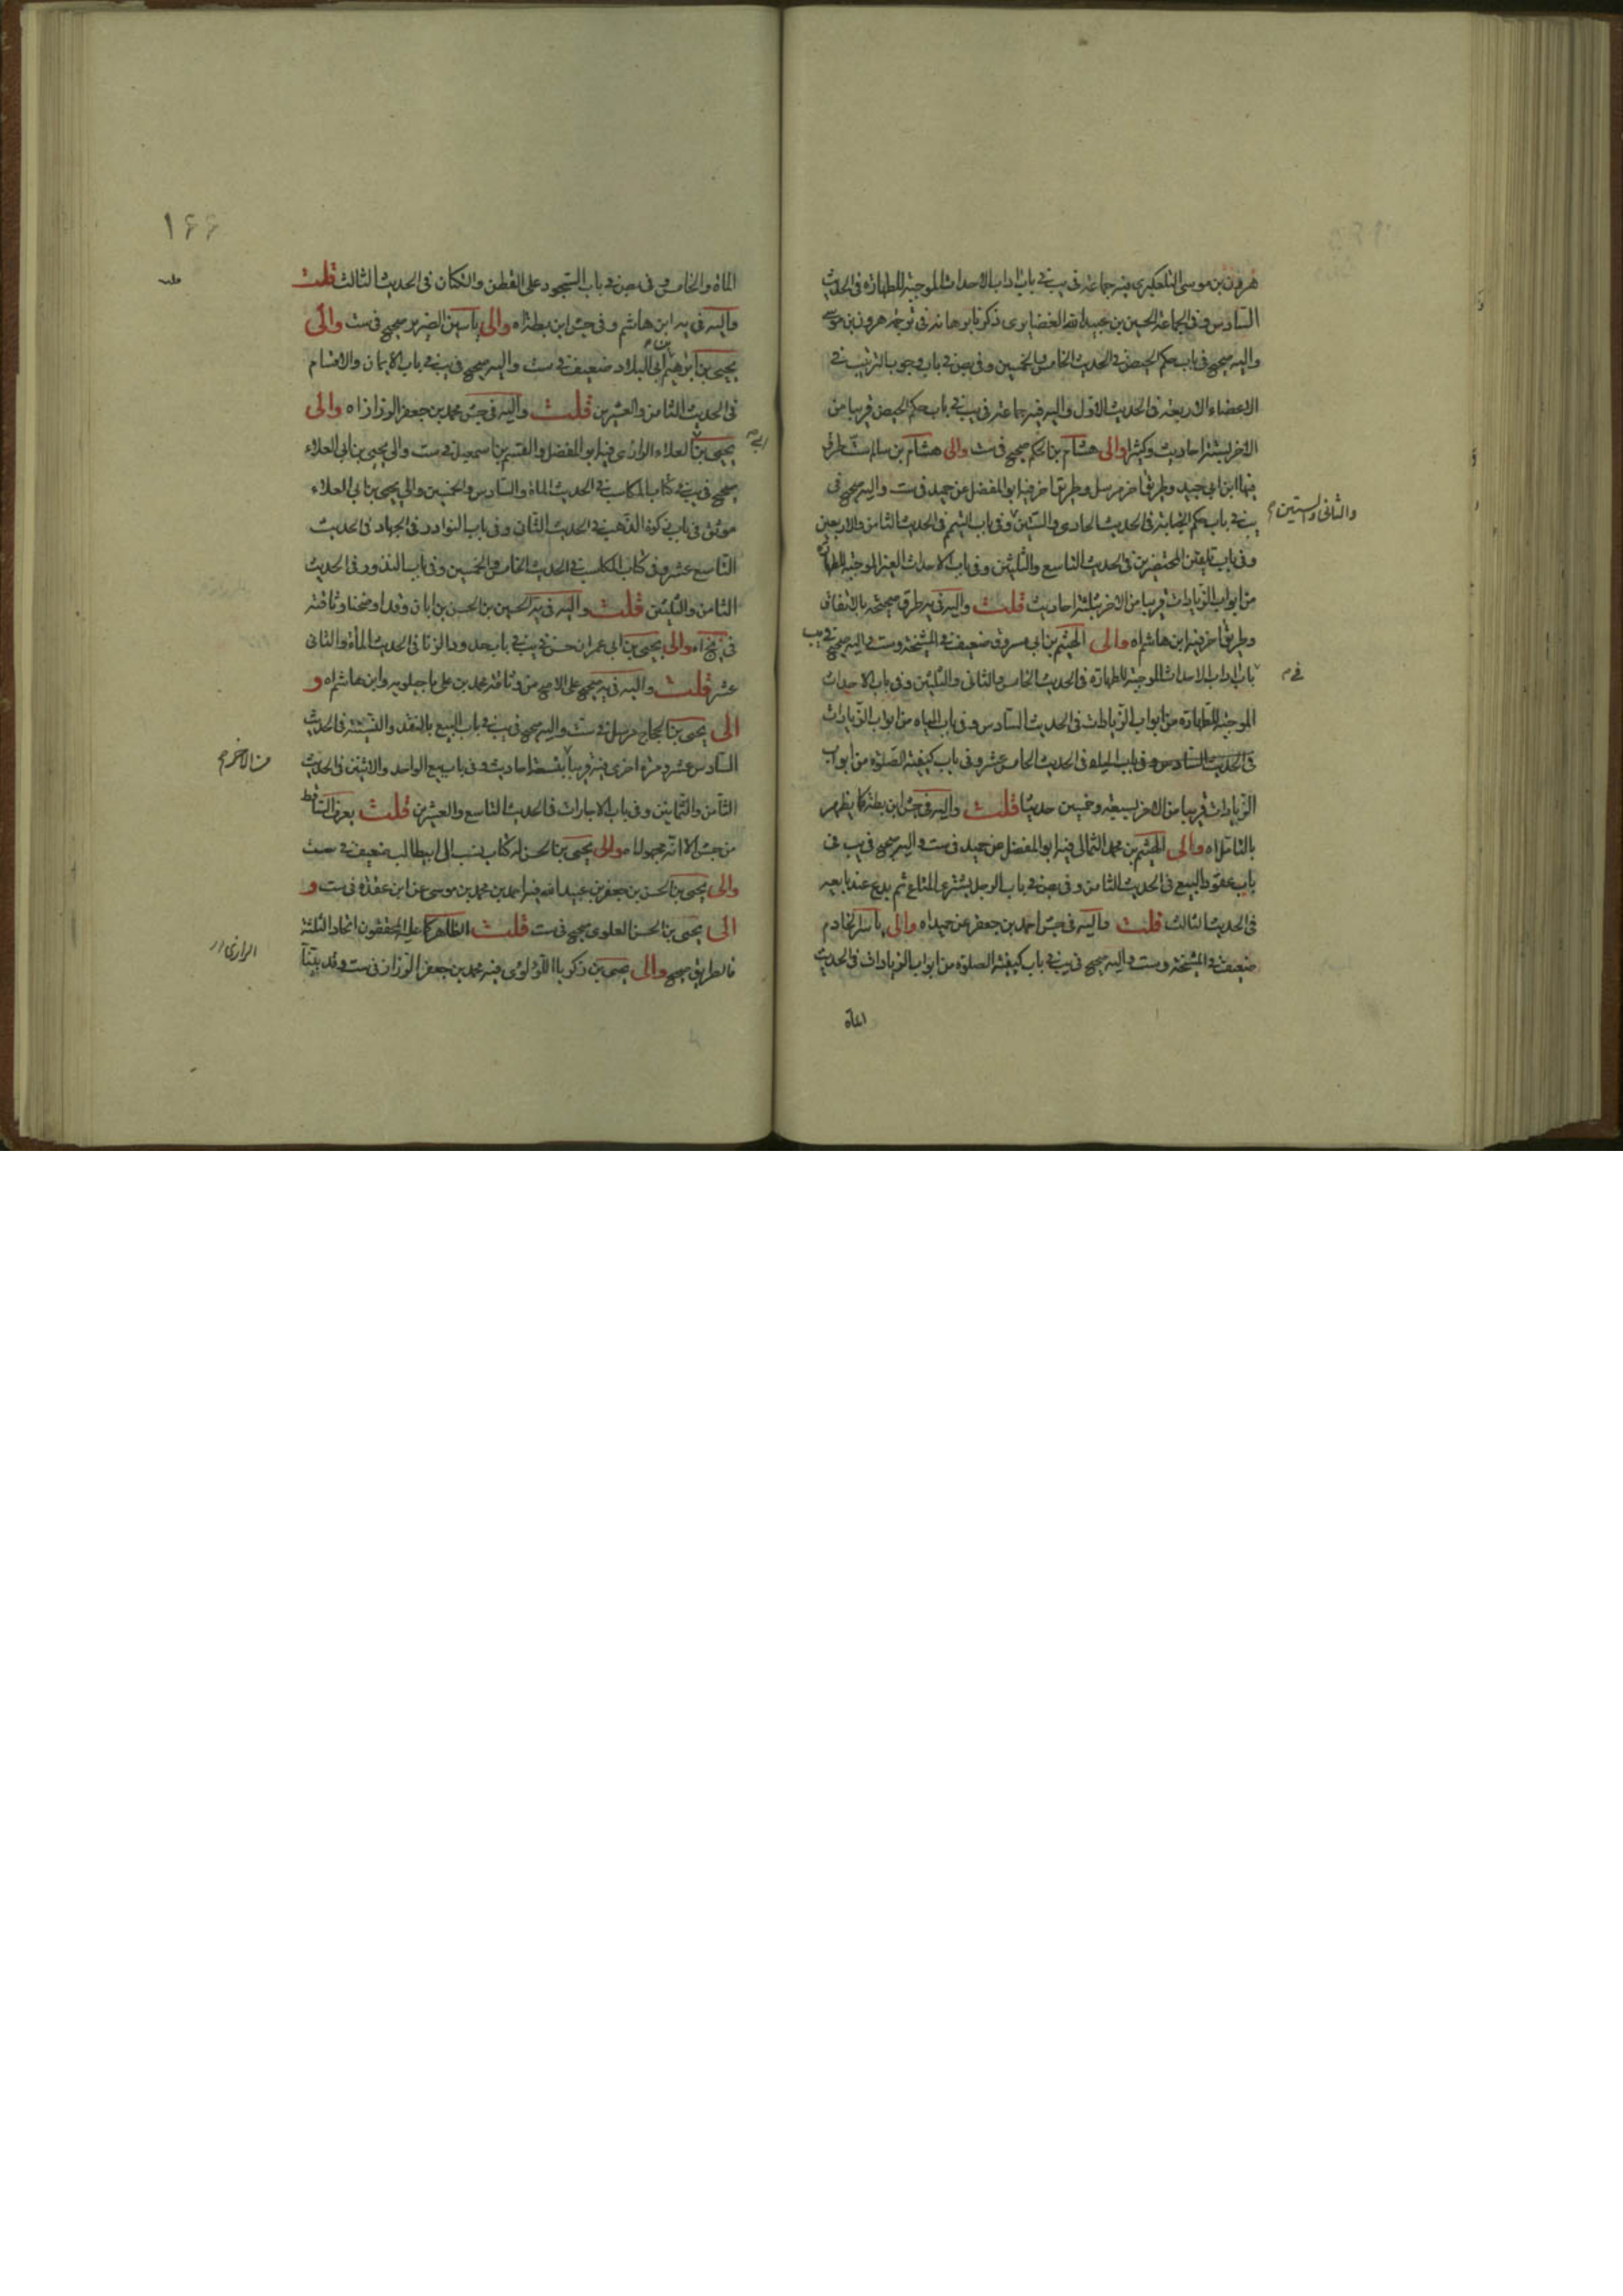 هرون بن موسى التلعكبرى فيه جماعة فى يب فى باب اداب الاحداث الموجبة للطهارة فى الحديث
السادس و فى الجماعة الحسين بن عبيد الله الغضايرى ذكر نا بو هانه فى ترجمة هرون بن موسى
واليه صحيح فى باب حكم الحيض فى الحديث الخامس والخمسين وفى بص فى باب وجوب الترتيب فى
الاعضاء الاربعة فى الحديث الاول واليه فيه جماعة فى يب فى باب حكم الحيض قريبا من
الاخر بستة احاديث وكيثرا والى هشام بن الحكم صحيح فى ست والى هشام بن سالم ست طرق
فيها ابن ابى جيد وطريق اخر مرسل وطريق اخر فيه ابو المفضل عن حميد فى ست واليه صحيح فى
يب فى باب حكم الجنابة فى الحديث الحادى والستين وفى باب التيمم فى الحديث الثامن والاربعين
والثانى والستين
وفى باب تلقين المحتضرين فى الحديث التاسع والثلثين وفى باب الاحداث الغير الموجبة للطهارة
من ابواب الزيادات قريبا من الاخر بثلثة احاديث قلت واليه فى يه طرق صحيحة بالاتفاق
وطريق اخر فيه ابن هاشم اه والى الهيثم بن ابى مسروق ضعيف فى المشيخة وست واليه صحيح فى يب
باب اداب الاحداث الموجبة للطهارة فى الحديث الخامس والثانى والثلثين وفى باب الاحداث
فى
الموجبة للطهارة من ابواب الزيادات فى الحديث السادس وفى باب المياه من ابواب الزيادات
فى الحديث السادس وفى باب المياه فى الحديث الخامس عشر وفى باب كيفية الصلوة من ابواب
الزيادات قريبا من الاخر بسبعة وخمسين حديثا قلت واليه فى جش ابن بطة كما يظهر
بالتامل اه والى الهيثم بن محمد الثمالى فيه ابو المفضل عن حميد فى ست واليه صحيح فى يب فى
باب عقود البيع فى الحديث الثامن وفى بص فى باب الرجل يشترى المتاع ثم يدع عند بايعه
فى الحديث الثالث قلت واليه فى جش احمد بن جعفر عن حميد اه والى ياسر الخادم
ضعيف فى المشيخة وست واليه صحيح فى يب فى باب كيفية الصلوة من ابواب الزيادات فى الحديث
المأة
١٦٦
المأة والخامس وفى بص فى باب السجود على القطن والكتان فى الحديث الثالث قلت
واليه فى يه ابن هاشم وفى جش ابن بطة اه والى ياسين الضرير صحيح فى ست والى
يحيى بن ابرهيم بن ابى البلاد ضعيف فى ست واليه صحيح فى يب فى باب الايمان والاقسام
فى الحديث الثامن والعشرين قلت واليه فى جش محمد بن جعفر الوزاز اه والى
يحيى بن العلاء الرازى فيه ابو المفضل والقسم بن اسمعيل فى ست والى يحيى بن ابى العلاء
صحيح فى يب فى كتاب المكاسب فى الحديث المأة والسادس والخمسين والى يحيى بن ابى العلاء
موثق فى باب زكوة الذهب فى الحديث الثانى وفى باب النوادر فى الجهاد فى الحديث
التاسع عشر وفى كتاب المكاسب فى الحديث الخامس والخمسين وفى باب النذور فى الحديث
الثامن والثلثين قلت واليه فى يه الحسين بن الحسن بن ابان وقد اوضحنا وثاقته
فى نخ اه والى يحيى بن ابى عمران حسن فى يب فى باب حدود الزنا فى الحديث المأة والثانى
عشر قلت واليه فى يه صحيح على الاصح من وثاقة محمد بن على ماجيلويه وابن هاشم اه و
الى يحيى بن الحجاج مرسل فى ست واليه صحيح فى يب فى باب البيع بالنقد والنسيئة فى الحديث
السادس عشر ومرة اخرى فيه قريبا بتسعة احاديث وفى باب بيع الواحد والاثنين فى الحديث
من الاخر
الثامن والثمانين وفى باب الاجارات فى الحديث التاسع والعشرين قلت يعرف الساقط
من جش الا انه مجهول اه والى يحيى بن الحسن له كتاب نسب ال ابيطالب ضعيف فى ست
والى يحيى بن الحسن بن جعفر بن عبيد الله فيه احمد بن محمد بن موسى عن ابن عقدة فى ست و
الى يحيى بن الحسن العلوى صحيح فى ست قلت الظاهر كما عليه المحققون اتحاد الثلثة
فالطريق صحيح والى يحيى بن زكريا اللؤلؤى فيه محمد بن جعفر الرزاز فى ست وقد بينا